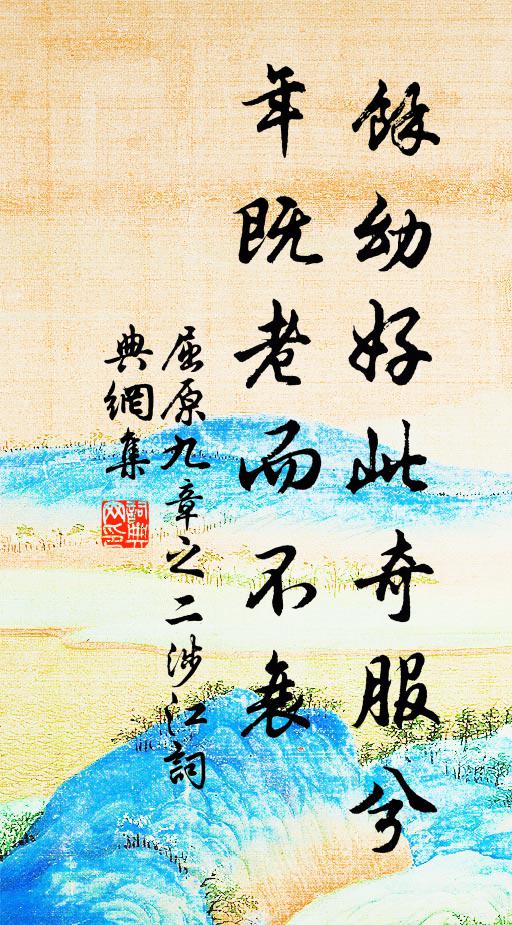 餘幼好此奇服兮
年既老而不衰
屈原九章之二涉江詞
典網集
詞典
网印